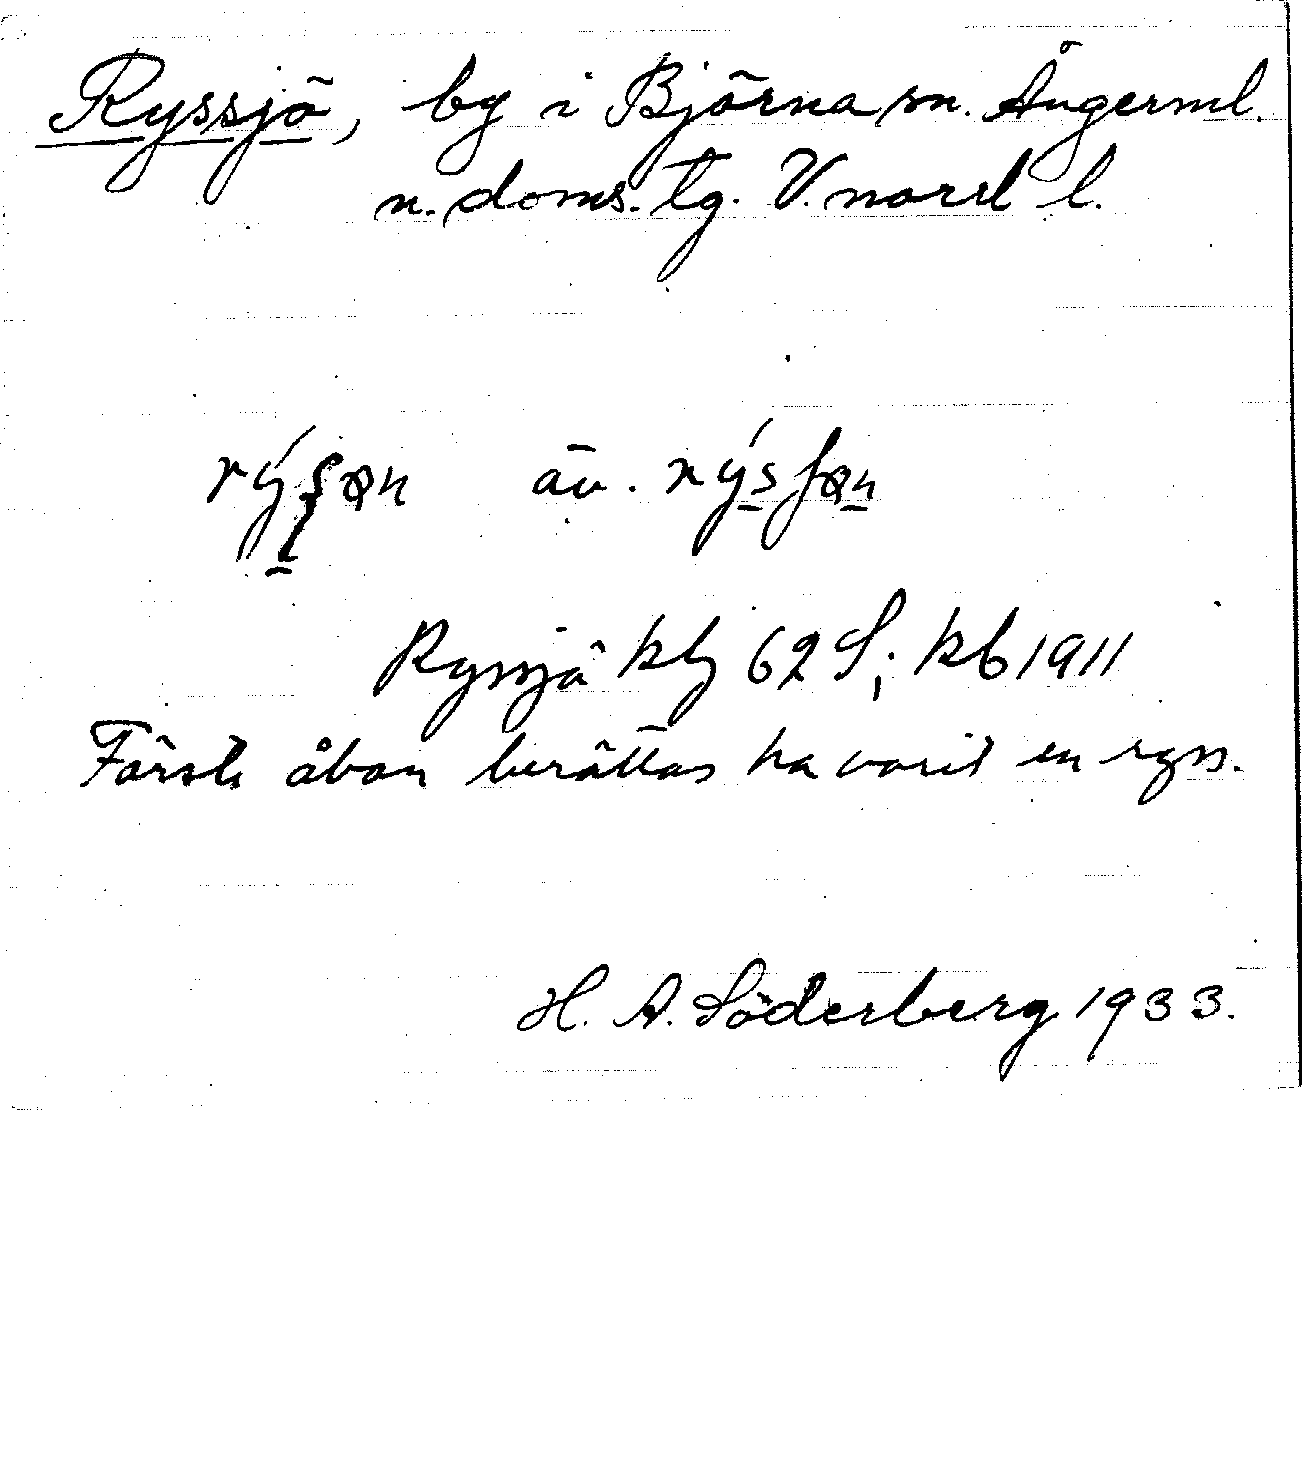 Ryssjö, by i Björna sn. Ångerml.
n. doms. tg. V.norrl l.
äv.
Ryssjö kbg 62 S; kb 1911
Förste åbon berättas ha varit en ryss.
H. A. Söderberg 1933.